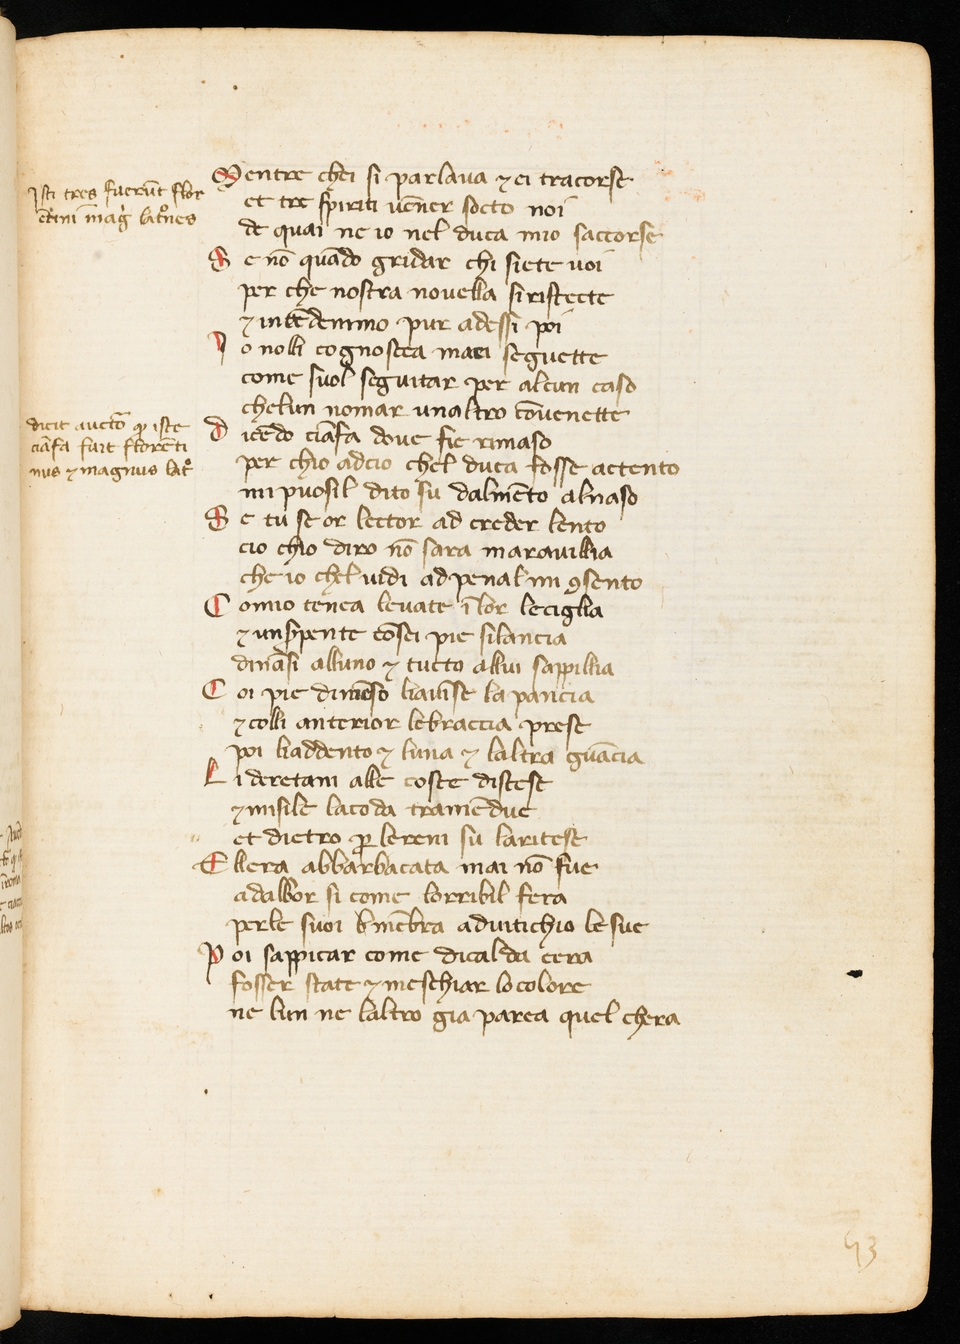 Isti tres fuerūt flor
ētini maḡ latͦnes
Mentre chei si parlaua ⁊ ei tracorse
et tre spiriti uēner socto noi
de quai ne io nel duca mio saccorse
Se nō quādo gridar chi siete uoi
per che nostra nouella si ristecte
⁊ intēdemmo pur adessi poi
Io nolli cognoscea maei seguette
come suol seguitar per alcun caso
chelun nomar unaltro cōuenette
dicit auctō ꝙ iste
ciāfa fuit florēti
nus ⁊ magnus latͦ
Dicēdo ciāfa doue fie rimaso
per chio adcio chel duca fosse actento
mi puosil dito su dalmēto alnaso
Se tu se or lector ad creder lento
cio chio diro nō sara marauillia
che io chel uidi ad penal mi ꝯsento
Comio tenea leuate ī lor leciglia
⁊ unspente cōsei pie silancia
dināsi alluno ⁊ tucto allui sappillia
Coi pie dimēso liauīse la pancia
⁊ colli anterior lebraccia prese
poi liaddento ⁊ luna ⁊ laltra guācia
Li deretani alle coste distese
⁊ misile lacoda tramēdue
et dietro ꝑ lereni su laritese
Ellera abbarbacata mai nō fue
adalbor si come lorribil fera
perle suoi mēbra aduitichio le sue
Poi sappicar come dicalda cera
fosser state ⁊ meschiar lo colore
ne lun ne laltro gia parea quel chera
93